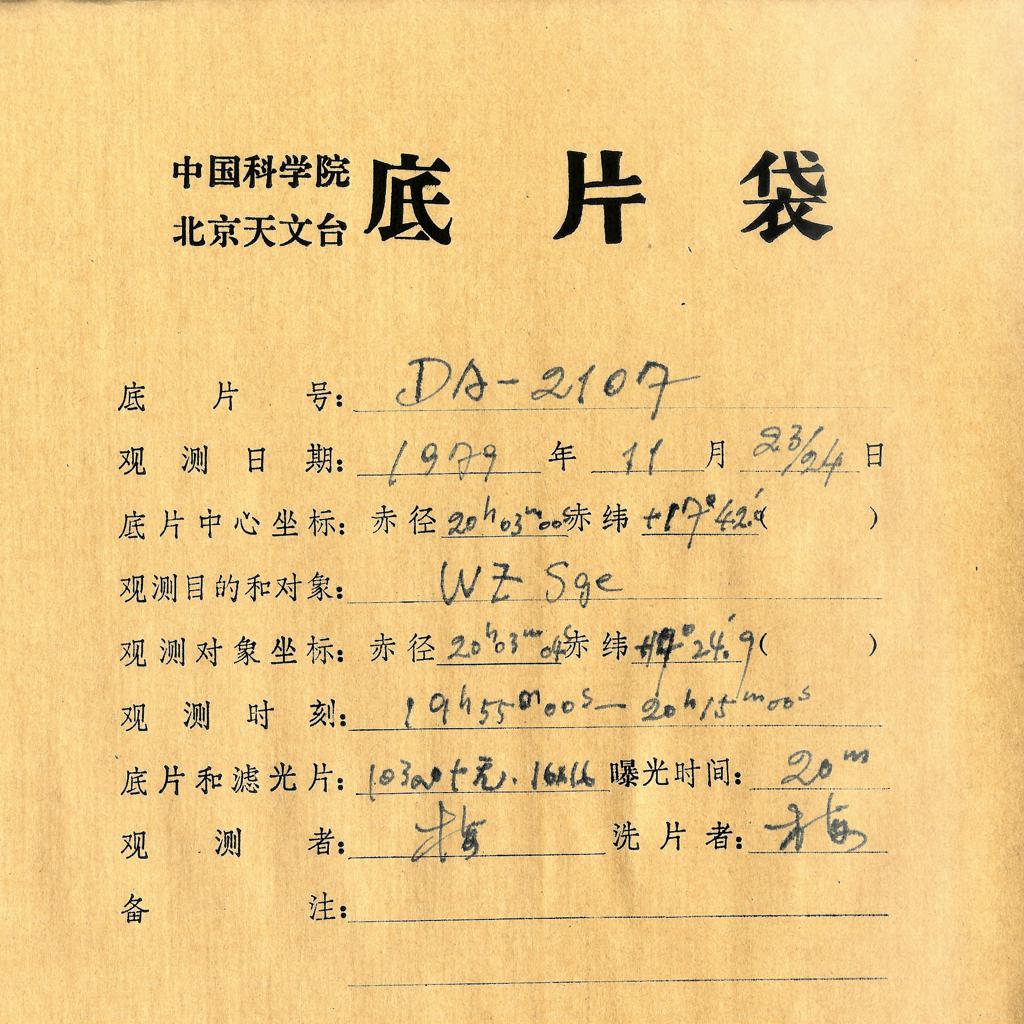 中国科学院
北京天文台
底片袋
底片号：DA-2107
观测日期：1979年11月23/24日
底片中心坐标：赤径20h03m00s赤纬+17°42.'0( )
观测目的和对象：WZ Sge
观测对象坐标：赤径20h03m04s赤纬+17°24.'9( )
观测时刻：19h55m00s—20h15m00s
底片和滤光片：103aO+无. 16x16 曝光时间：20m
观测者：梅 洗片者：梅
备注：